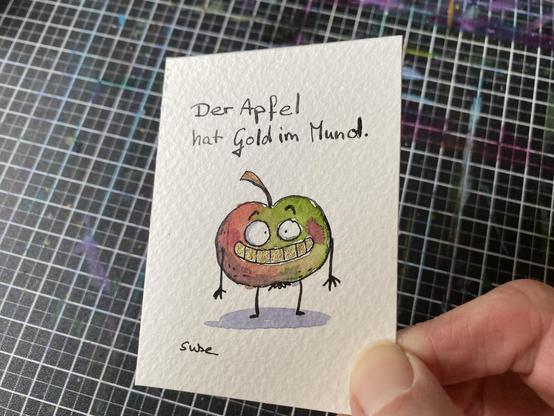 Der Apfel
hat Gold im Mund.
Suse